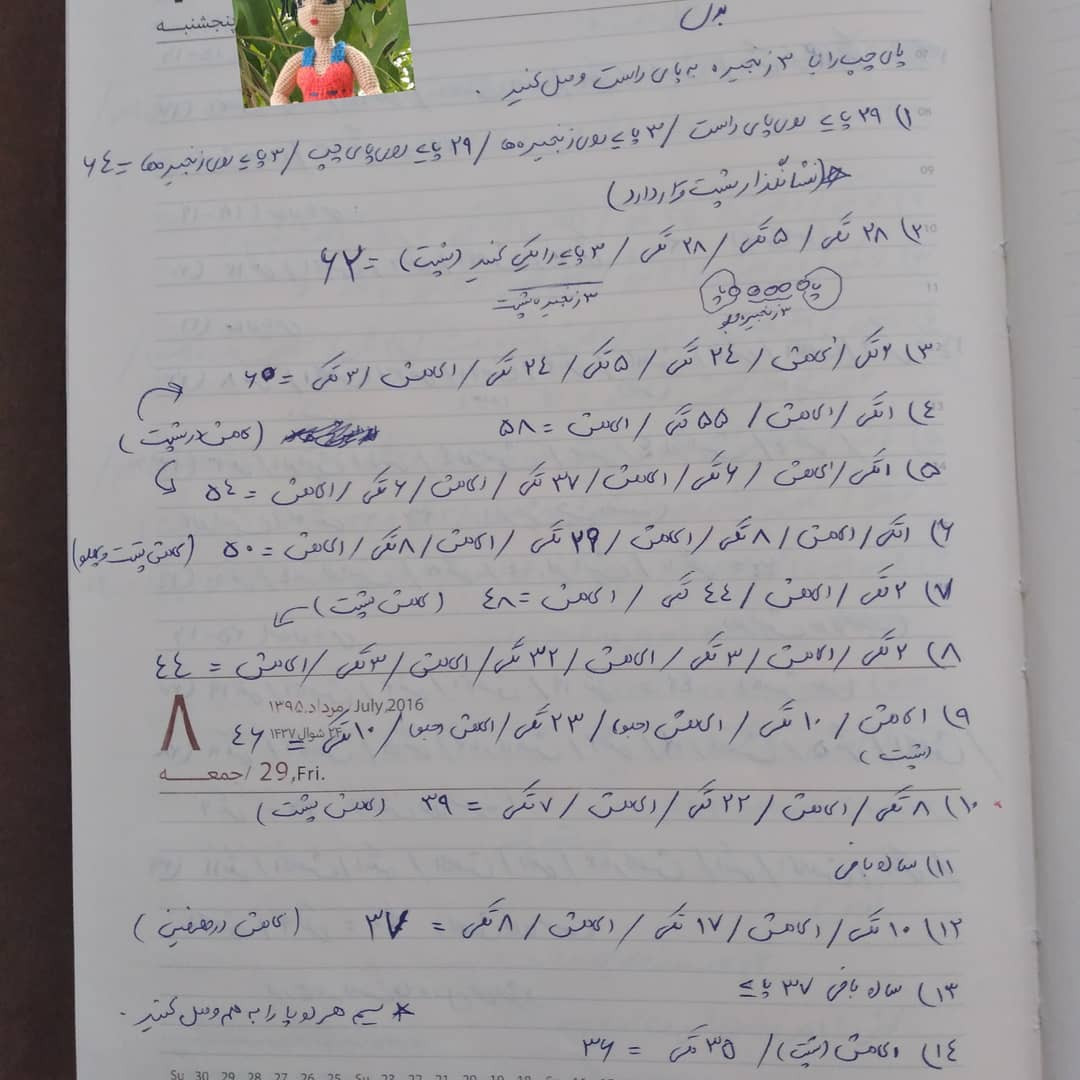 پنجشنبه
بدن
پای چپ را با ۳ زنجیره به پای راست وصل کنید .
۱) ۲۹ پایه روی پای راست / ۳ پایه روی زنجیره‌ها / ۲۹ پایه روی پای چپ / ۳ پایه روی زنجیره‌ها = ۶۴
(نشانگذار پشت قرار دارد)
۲) ۲۸ تکی / ۵ تکی / ۲۸ تکی / ۳ پایه را یکی کنید (پشت) = ۶۲
۳ زنجیره پشت
پا پا
۳ زنجیره جلو
۳) ۲ تکی / ۱کاهش / ۲۴ تکی / ۵ تکی / ۲۴ تکی / ۱کاهش / ۳ تکی = ۶۰
۴) ۱تکی / ۱کاهش / ۵۵ تکی / ۱کاهش = ۵۸
(کاهش در پشت)
۵) ۱تکی / ۱کاهش / ۶ تکی / ۱کاهش / ۳۷ تکی / ۱کاهش / ۶ تکی / ۱کاهش = ۵۴
۶) ۱تکی / ۱کاهش / ۸ تکی / ۱کاهش / ۲۹ تکی / ۱کاهش / ۸ تکی / ۱کاهش = ۵۰ (کاهش پشت و پهلو)
۷) ۲ تکی / ۱کاهش / ۴۴ تکی / ۱کاهش = ۴۸ (کاهش پشت)
۸) ۲ تکی / ۱کاهش / ۳ تکی / ۱کاهش / ۳۲ تکی / ۱کاهش / ۳ تکی / ۱کاهش = ۴۴
۸
مرداد.۱۳۹۵ July,2016
۹) ۱کاهش / ۱۰ تکی / ۱کاهش (جلو) / ۲۳ تکی / ۱کاهش (جلو) / ۱۰ تکی = ۴۶
(پشت)
۲۳ شوال ۱۴۳۷
جمعه / 29,Fri.
۱۰) ۸ تکی / ۱کاهش / ۲۲ تکی / ۱کاهش / ۷ تکی = ۳۹ (کاهش پشت)
۱۱) ساده بافی
۱۲) ۱۰ تکی / ۱کاهش / ۱۷ تکی / ۱کاهش / ۸ تکی = ۳۷ (کاهش در طرفین)
۱۳) ساده بافی ۳۷ پایه
* سیم هر دو پا را به هم وصل کنید .
۱۴) ۱کاهش (پشت) / ۳۵ تکی = ۳۶
Su 30 29 28 27 26 25 Su 23 22 21 20 19 18